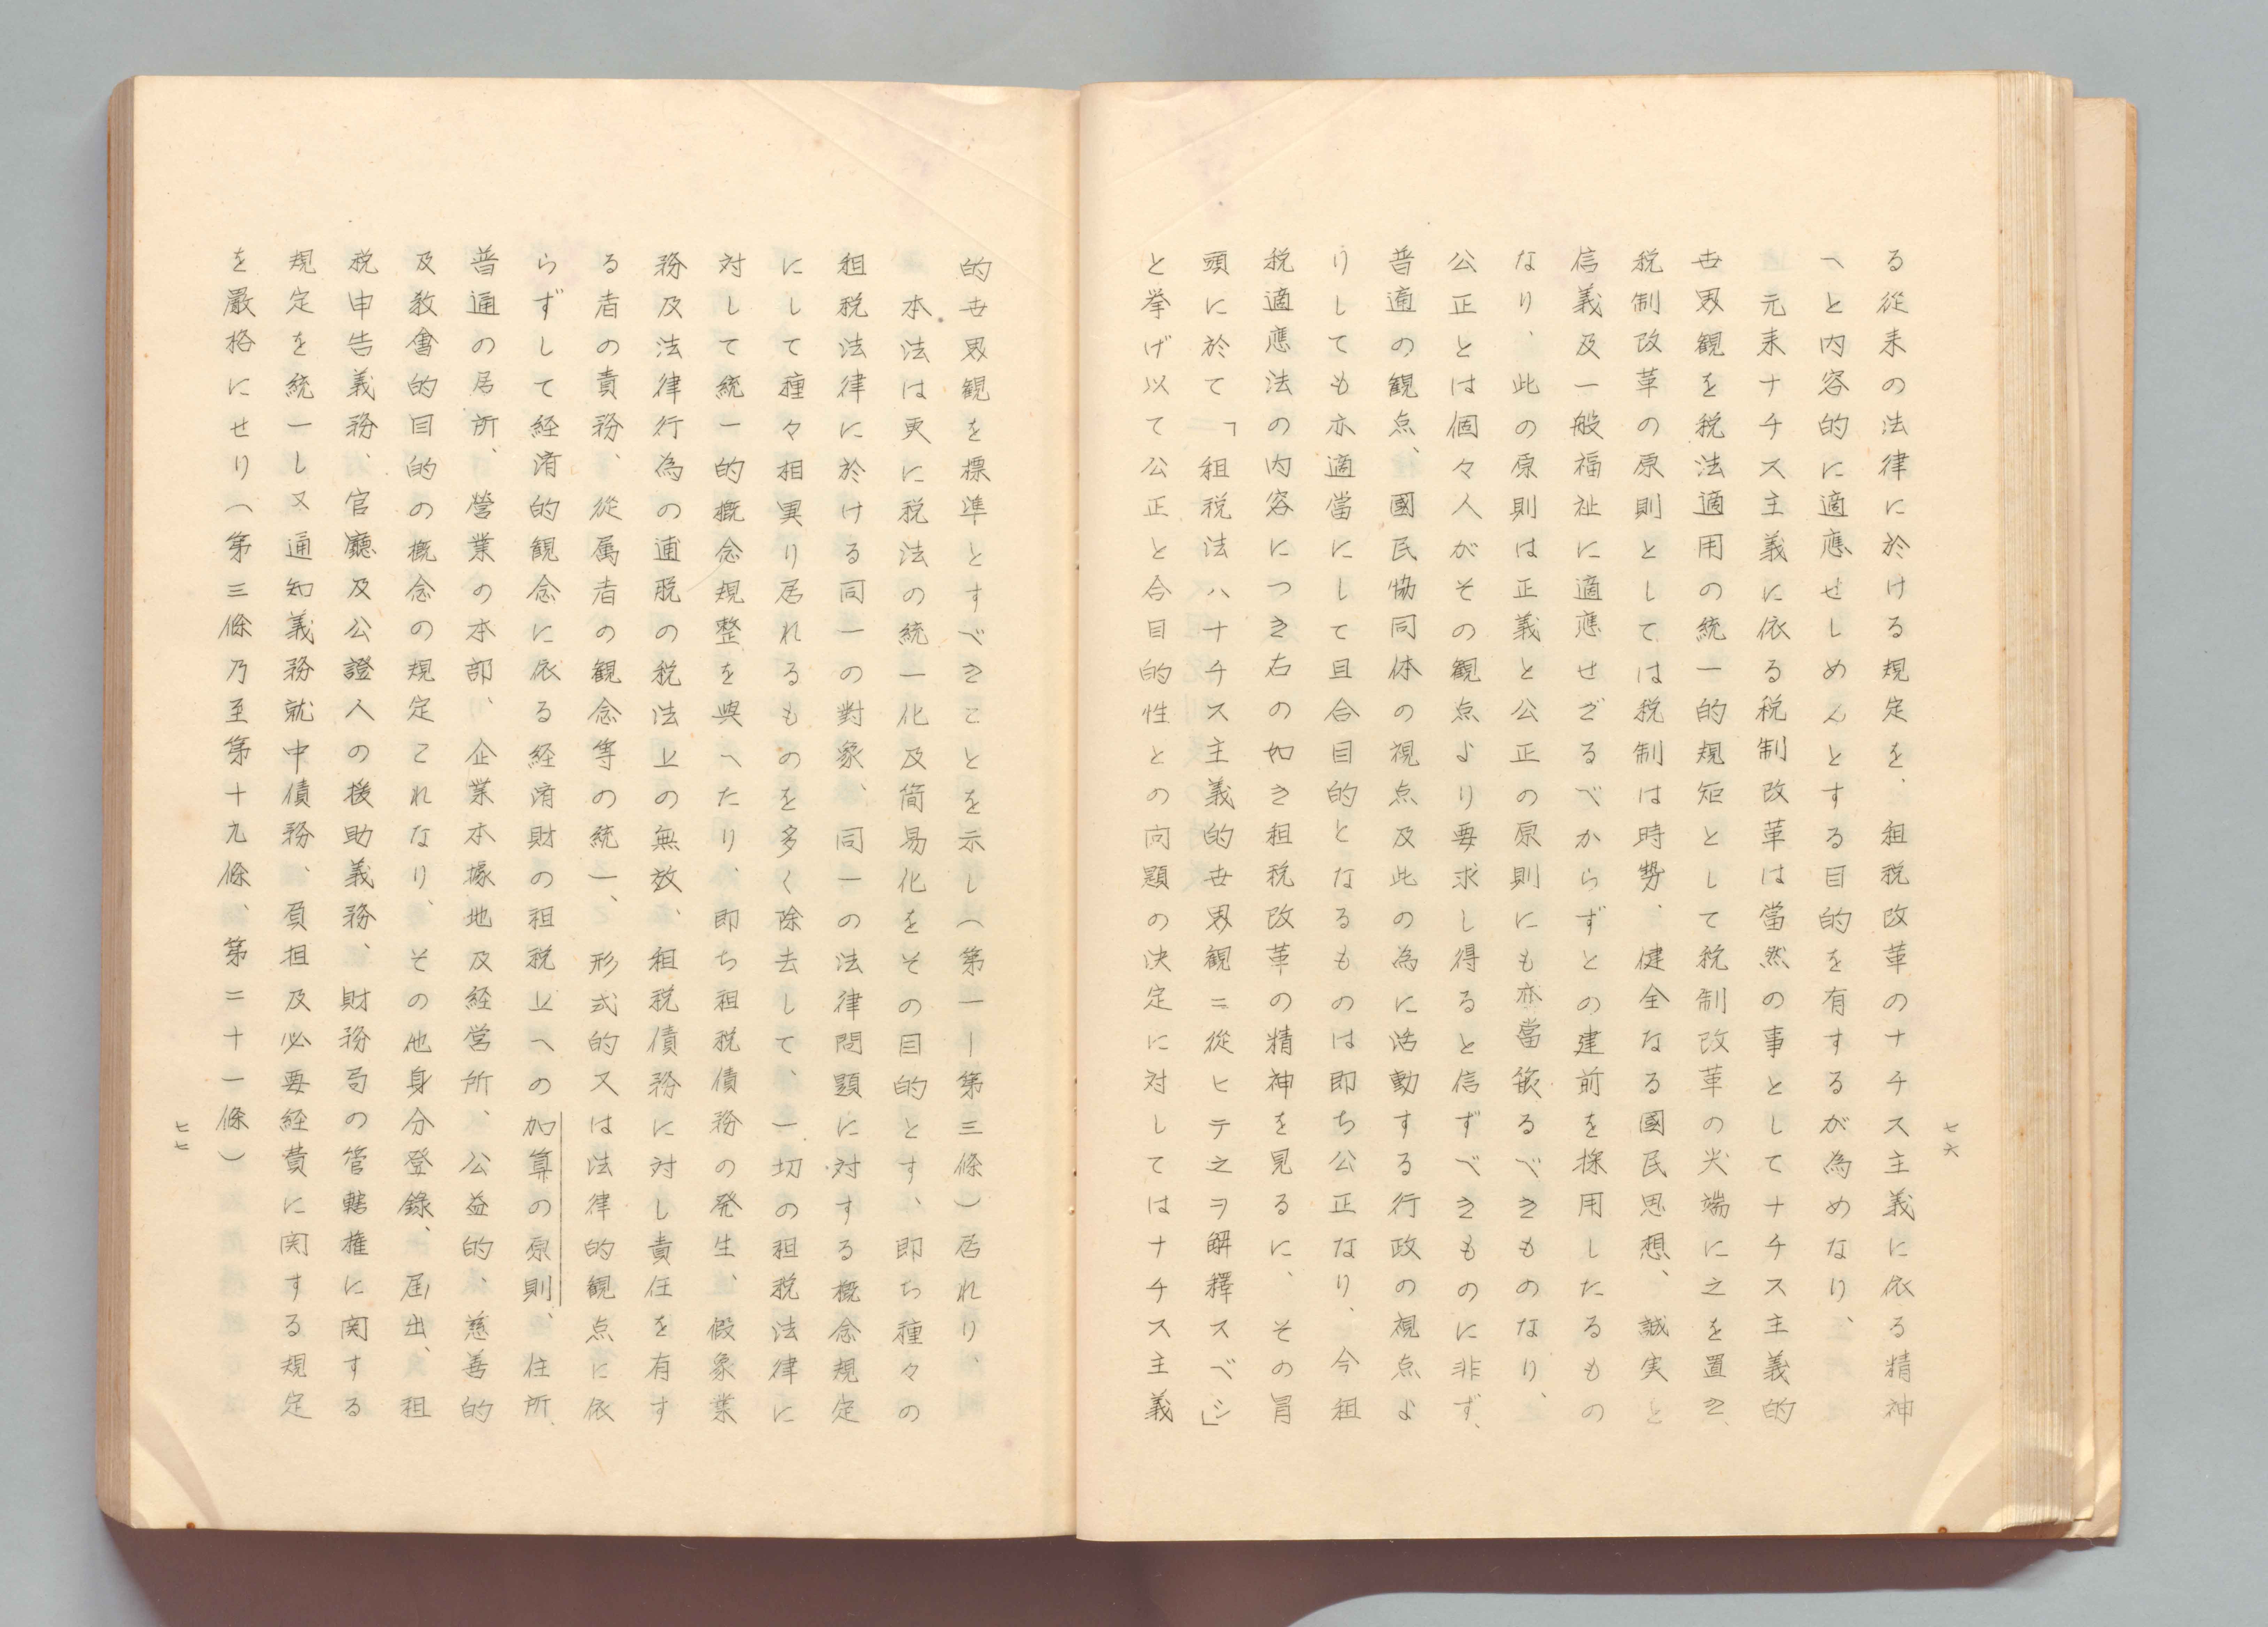 る從来の法律に於ける規定を、租税改革のナチス主義に依る精神
へと内容的に適應せしめんとする目的を有するが為めなり、
元来ナチス主義に依る税制改革は當然の事としてナチス主義的
世界観を税法適用の統一的規矩として税制改革の尖端に之を置き、
税制改革の原則としては税制は時勢、健全なる國民思想、誠実と
信義及一般福祉に適應せざるべからずとの建前を採用したるもの
なり、此の原則は正義と公正の原則にも亦當篏るべきものなり、
公正とは個々人がその観点より要求し得ると信ずべきものに非ず、
普遍の観点、國民協同体の視点及此の為に活動する行政の視点よ
りしても亦適當にして且合目的となるものは即ち公正なり、今租
税適應法の内容につき右の如き租税改革の精神を見るに、その冒
頭に於て「租税法ハナチス主義的世界観ニ從ヒテ之ヲ解釋スベシ」
と挙げ以て公正と合目的性との問題の決定に対してはナチス主義
七六
的世界観を標準とすべきことを示し（第一ー第三條）居れり、
本法は更に税法の統一化及簡易化をその目的とす、即ち種々の
租税法律に於ける同一の對象、同一の法律問題に対する概念規定
にして種々相異り居れるものを多く除去して、一切の租税法律に
対して統一的概念規整を與へたり、即ち租税債務の発生、假象業
務及法律行為の逋脱の税法上の無效、租税債務に対し責任を有す
る者の責務、從属者の観念等の統一、形式的又は法律的観点に依
らずして経済的観念に依る経済財の租税上への加算の原則、住所、
普通の居所、營業の本部、企業本據地及経営所、公益的、慈善的
及教會的目的の概念の規定これなり、その他身分登錄、屆出、租
税申告義務、官廳及公證人の援助義務、財務局の管轄権に関する
規定を統一し又通知義務就中債務、負担及必要経費に関する規定
を嚴格にせり（第三條乃至第十九條、第二十一條）
七七